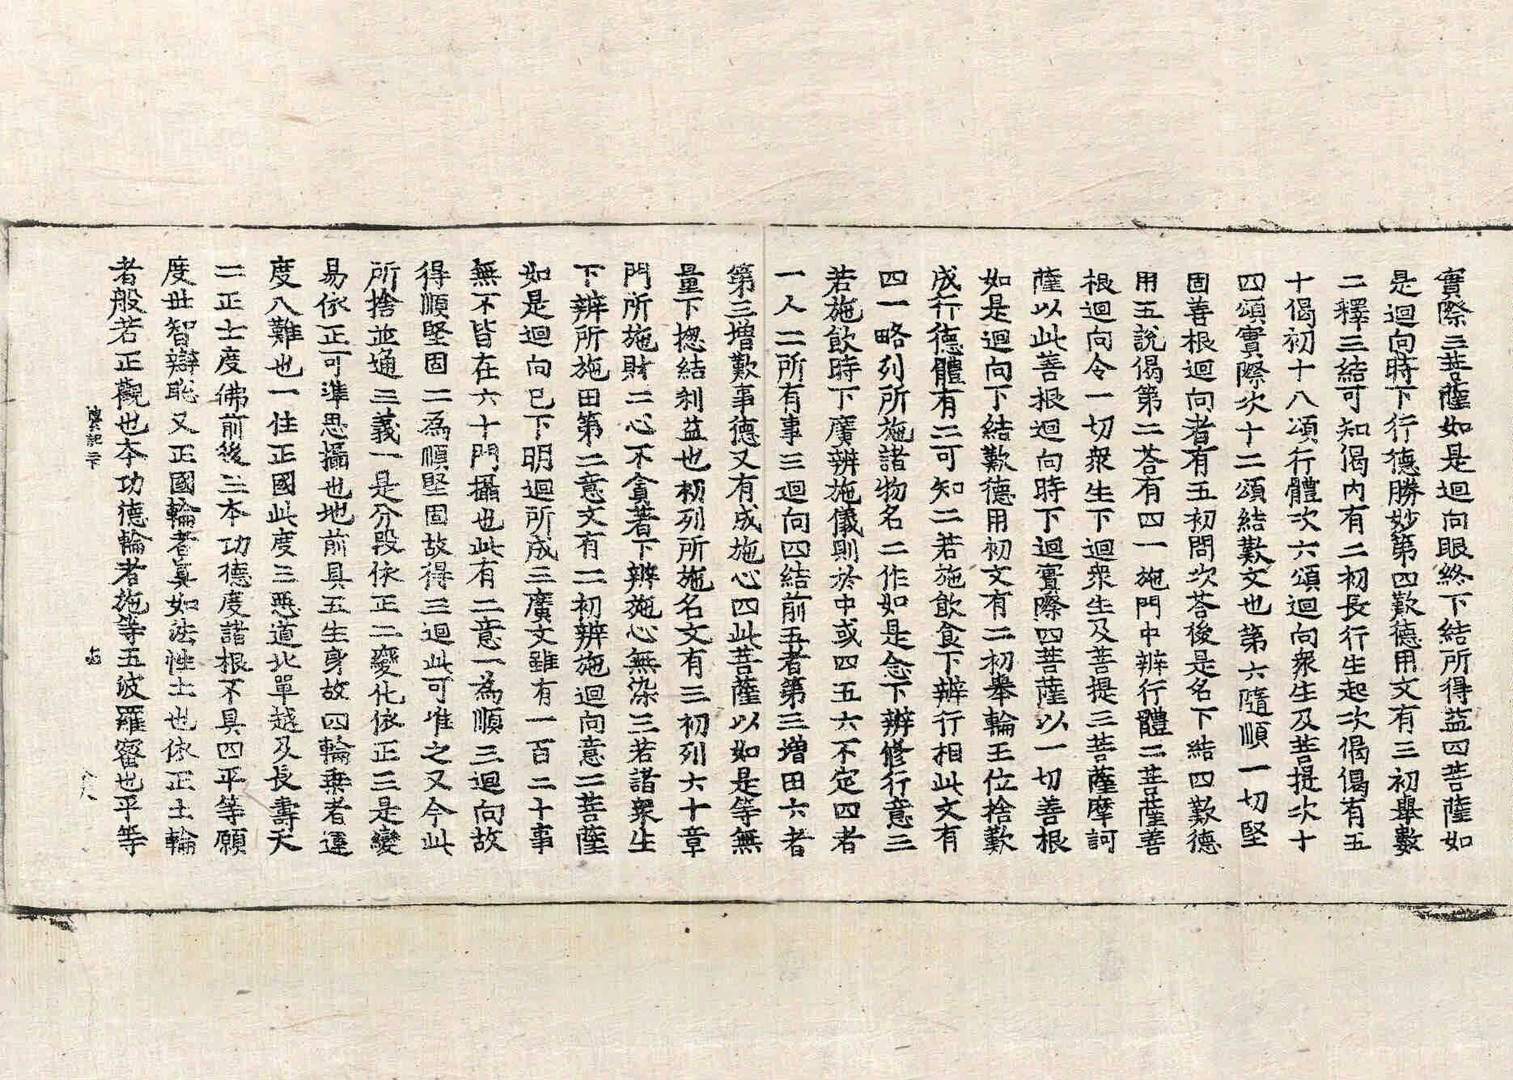 實際三菩薩如是迴向眼終下結所得益四菩薩如
是迴向時下行德勝妙第四歎德用文有三初舉數
二釋三結可知偈內有二初長行生起次偈偈有五
十偈初十八頌行體次六頌迴向衆生及菩提次十
四頌實際次十二頌結歎文也第六隨順一切堅
固善根迴向者有五初問次荅後是名下結四歎德
用五說偈第二荅有四一施門中辨行體二菩薩善
根迴向令一切衆生下迴衆生及菩提三菩薩摩訶
薩以此善根迴向時下迴實際四菩薩以一切善根
如是迴向下結歎德用初文有二初舉輪王位捨歎
成行德體有二可知二若施飲食下辨行相此文有
四一略列所施諸物名二作如是念下辨修行意三
若施飲時下廣辨施儀則於中或四五六不定四者
一人二所有事三迴向四結前五者第三增田六者
第三增歎事德又有成施心四此菩薩以如是等無
量下揔結利益也初列所施名文有三初列六十章
門所施財二心不貪著下辨施心無染三若諸衆生
下辨所施田第二意文有二初辨施迴向意二菩薩
如是迴向已下明迴所成三廣文雖有一百二十事
無不皆在六十門攝也此有二意一為順三迴向故
得順堅固二為順堅固故得三迴此可准之又今此
所捨並通三義一是分段依正二變化依正三是變
易依正可準思攝也地前具五生身故四輪乗者運
度八難也一住正國此度三惡道北單越及長壽天
二正士度佛前後三本功德度諸根不具四平等願
度世智辯聡又正國輪者眞如法性土也依正土輪
者般若正觀也本功德輪者施等五波羅蜜也平等